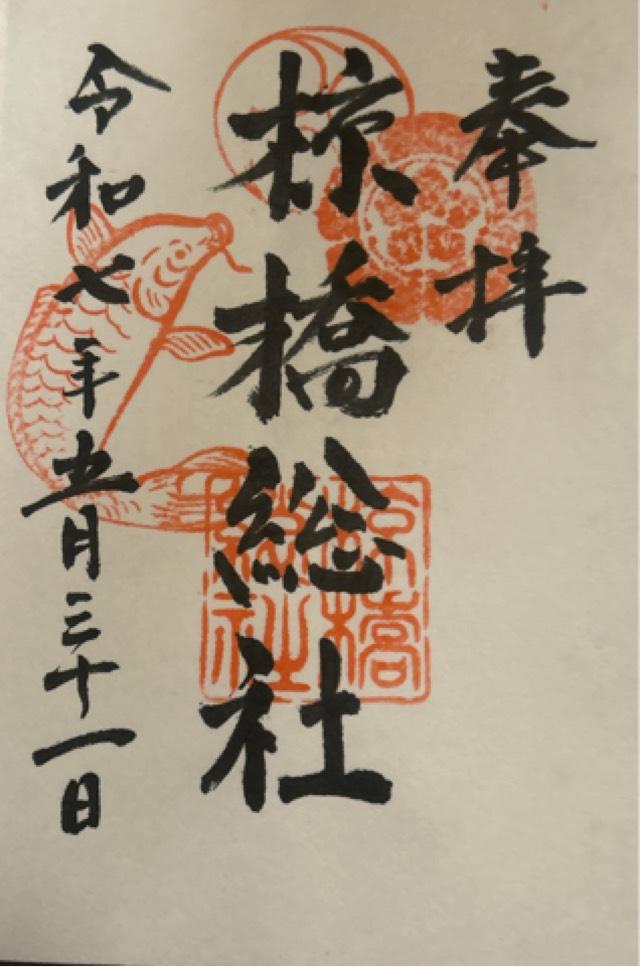 奉拝
椋橋総社
令和七年五月三十一日
椋橋
総社